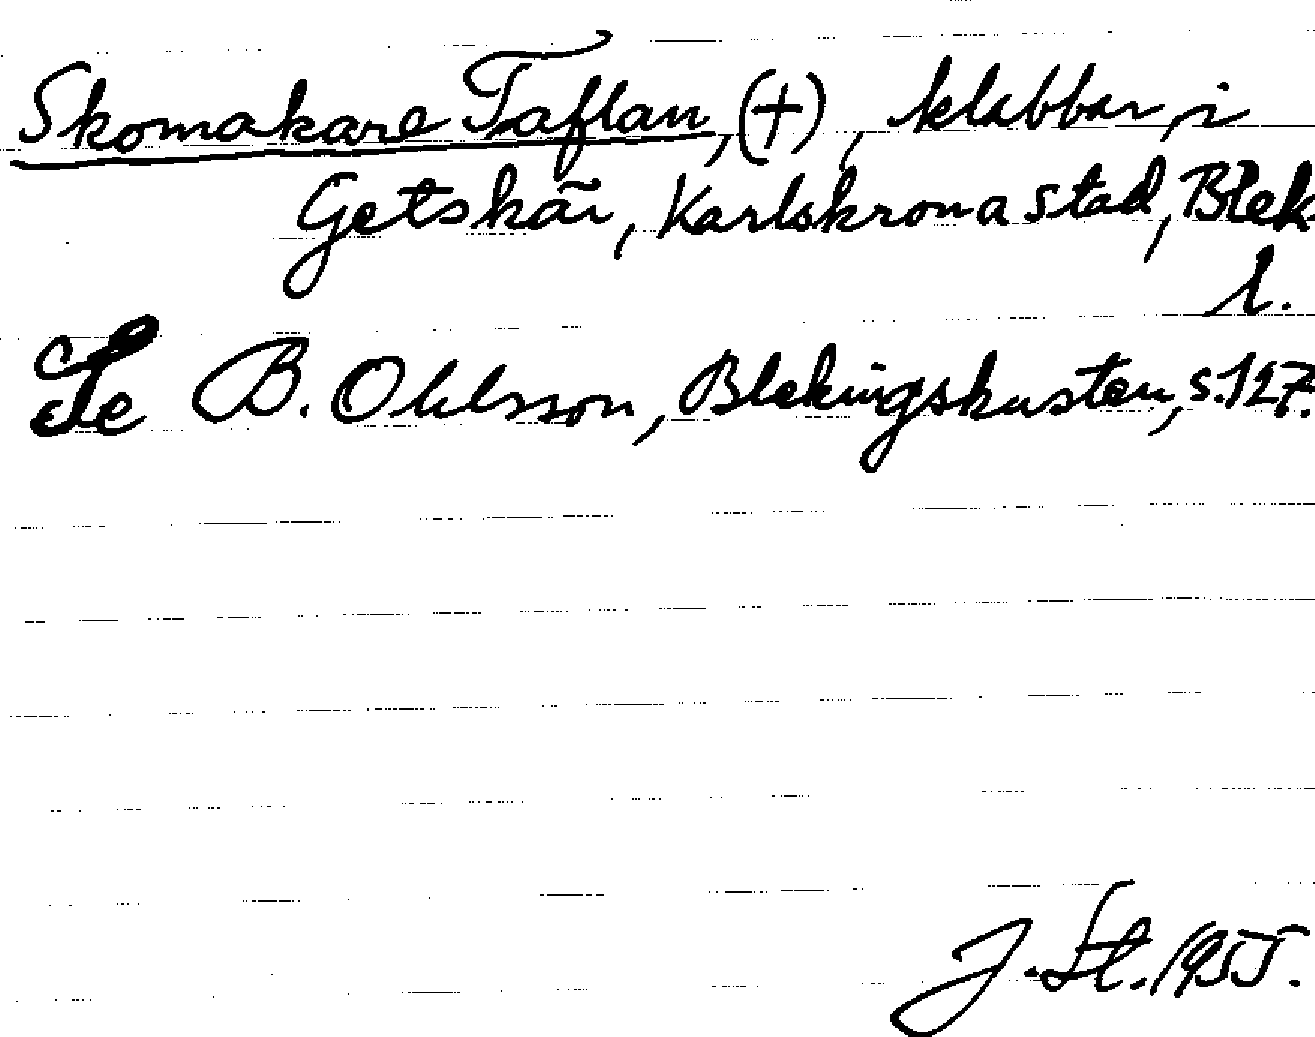 Skomakare Taflan, (+), klabbar, i
Getskär, Karlskrona stad, Blek.
l.
Se B. Ohlsson, Blekingskusten, s. 127.
J. St. 1955.